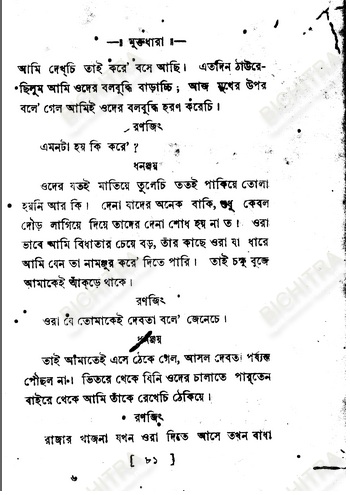 —॥ মুক্তধারা ॥—
আমি দেখ্‌চি তাই করে' বসে আছি। এতদিন ঠাউরে-
ছিলুম আমি ওদের বলবুদ্ধি বাড়াচ্চি ; আজ মুখের উপর
বলে' গেল আমিই ওদের বলবুদ্ধি হরণ করেচি।
রণজিৎ
এমনটা হয় কি করে' ?
ধনঞ্জয়
ওদের যতই মাতিয়ে তুলেচি ততই পাকিয়ে তোলা
হয়নি আর কি। দেনা যাদের অনেক বাকি, শুধু কেবল
দৌড় লাগিয়ে দিয়ে তাদের দেনা শোধ হয় না ত। ওরা
ভাবে আমি বিধাতার চেয়ে বড়, তাঁর কাছে ওরা যা ধারে
আমি যেন তা নামঞ্জুর করে' দিতে পারি। তাই চক্ষু বুজে
আমাকেই আঁক্‌ড়ে থাকে।
রণজিৎ
ওরা যে তোমাকেই দেবতা বলে' জেনেচে।
ধনঞ্জয়
তাই আমাতেই এসে ঠেকে গেল, আসল দেবতা পর্য্যন্ত
পৌঁছল না। ভিতরে থেকে যিনি ওদের চালাতে পার্‌তেন
বাইরে থেকে আমি তাঁকে রেখেচি ঠেকিয়ে।
রণজিৎ
রাজার খাজনা যখন ওরা দিতে আসে তখন বাধা
[ ৮১ ]
৬
BICHITRA